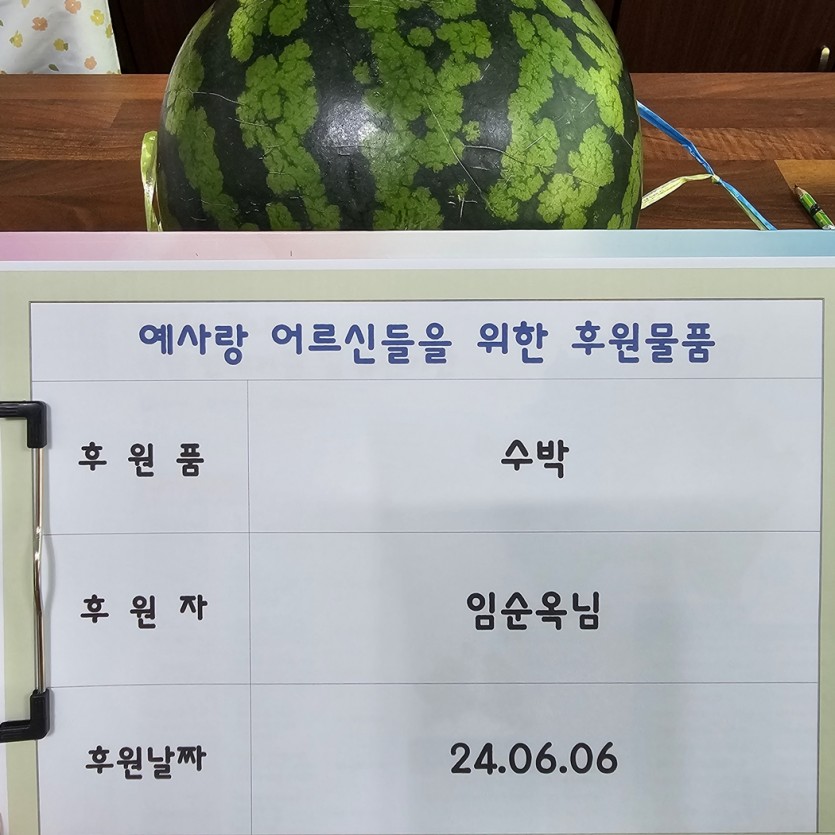 예사랑 어르신들을 위한 후원물품
후 원 품 수박
후 원 자 임순옥님
후원날짜 24.06.06